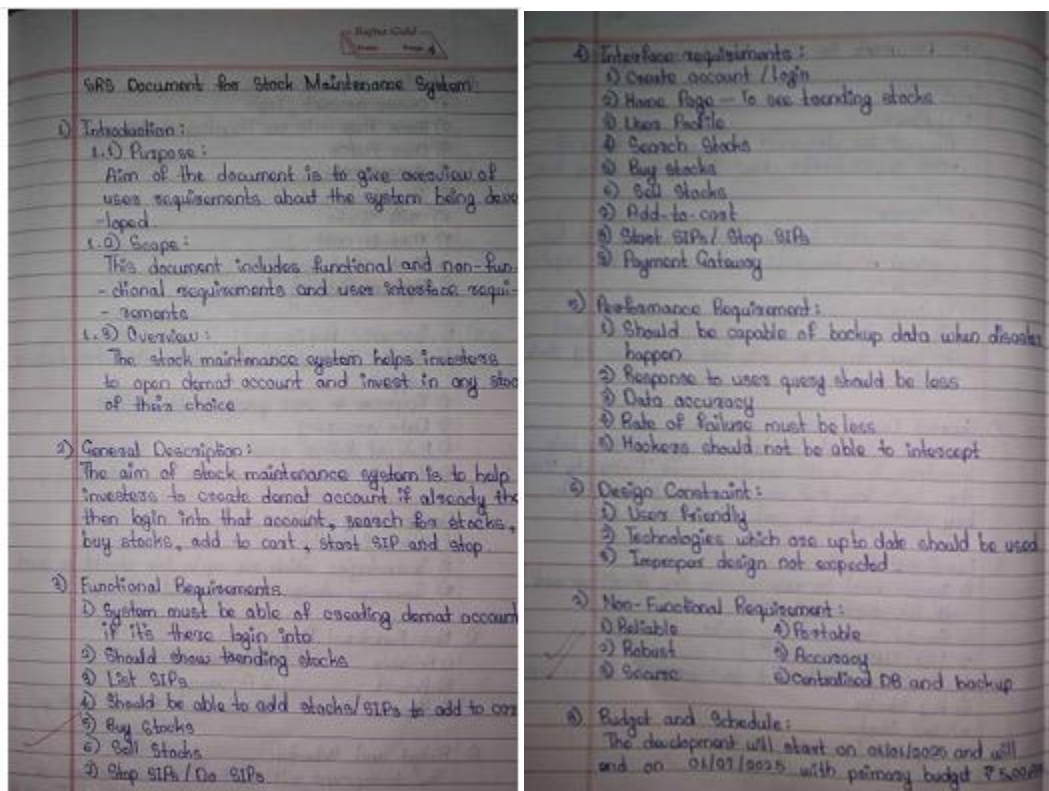 SRS Document for Stock Maintenance System:
1) Introduction:
1.1) Purpose:
Aim of the document is to give overview of
user requirements about the system being deve
-loped.
1.2) Scope:
This document includes functional and non-fun-
-ctional requirements and user interface requi-
-rements
1.3) Overview:
The stock maintenance system helps investers
to open demat account and invest in any stoc
of their choice
2) General Description:
The aim of stock maintenance system is to help
investers to create demat account if already the
then login into that account, search for stocks,
buy stocks, add to cart, start SIP and stop.
3) Functional Requirements.
1) System must be able of creating demat account
if it's there login into
2) Should show trending stocks
3) List SIPs
4) Should be able to add stocks/SIPs to add to car
5) Buy Stocks
6) Sell Stocks
7) Stop SIPs / Do SIPs
4) Interface requirements:
1) Create account /login
2) Home Page - To see trending stocks
3) User Profile
4) Search Stocks
5) Buy stocks
6) Sell Stocks
7) Add-to-cart
8) Start SIPs/ Stop SIPs
9) Payment Gateway
5) Performance Requirement:
1) Should be capable of backup data when disaster
happen
2) Response to user query should be less
3) Data accuracy
4) Rate of failure must be less
5) Hackers should not be able to intercept
6) Design Constraint:
1) User friendly
2) Technologies which are upto date should be used
3) Improper design not expected
7) Non-Functional Requirement:
1) Reliable 4) Portable
2) Robust 5) Accuracy
3) Secure 6) Centralised DB and backup
8) Budget and Schedule:
The development will start on and will
end on with primary budget